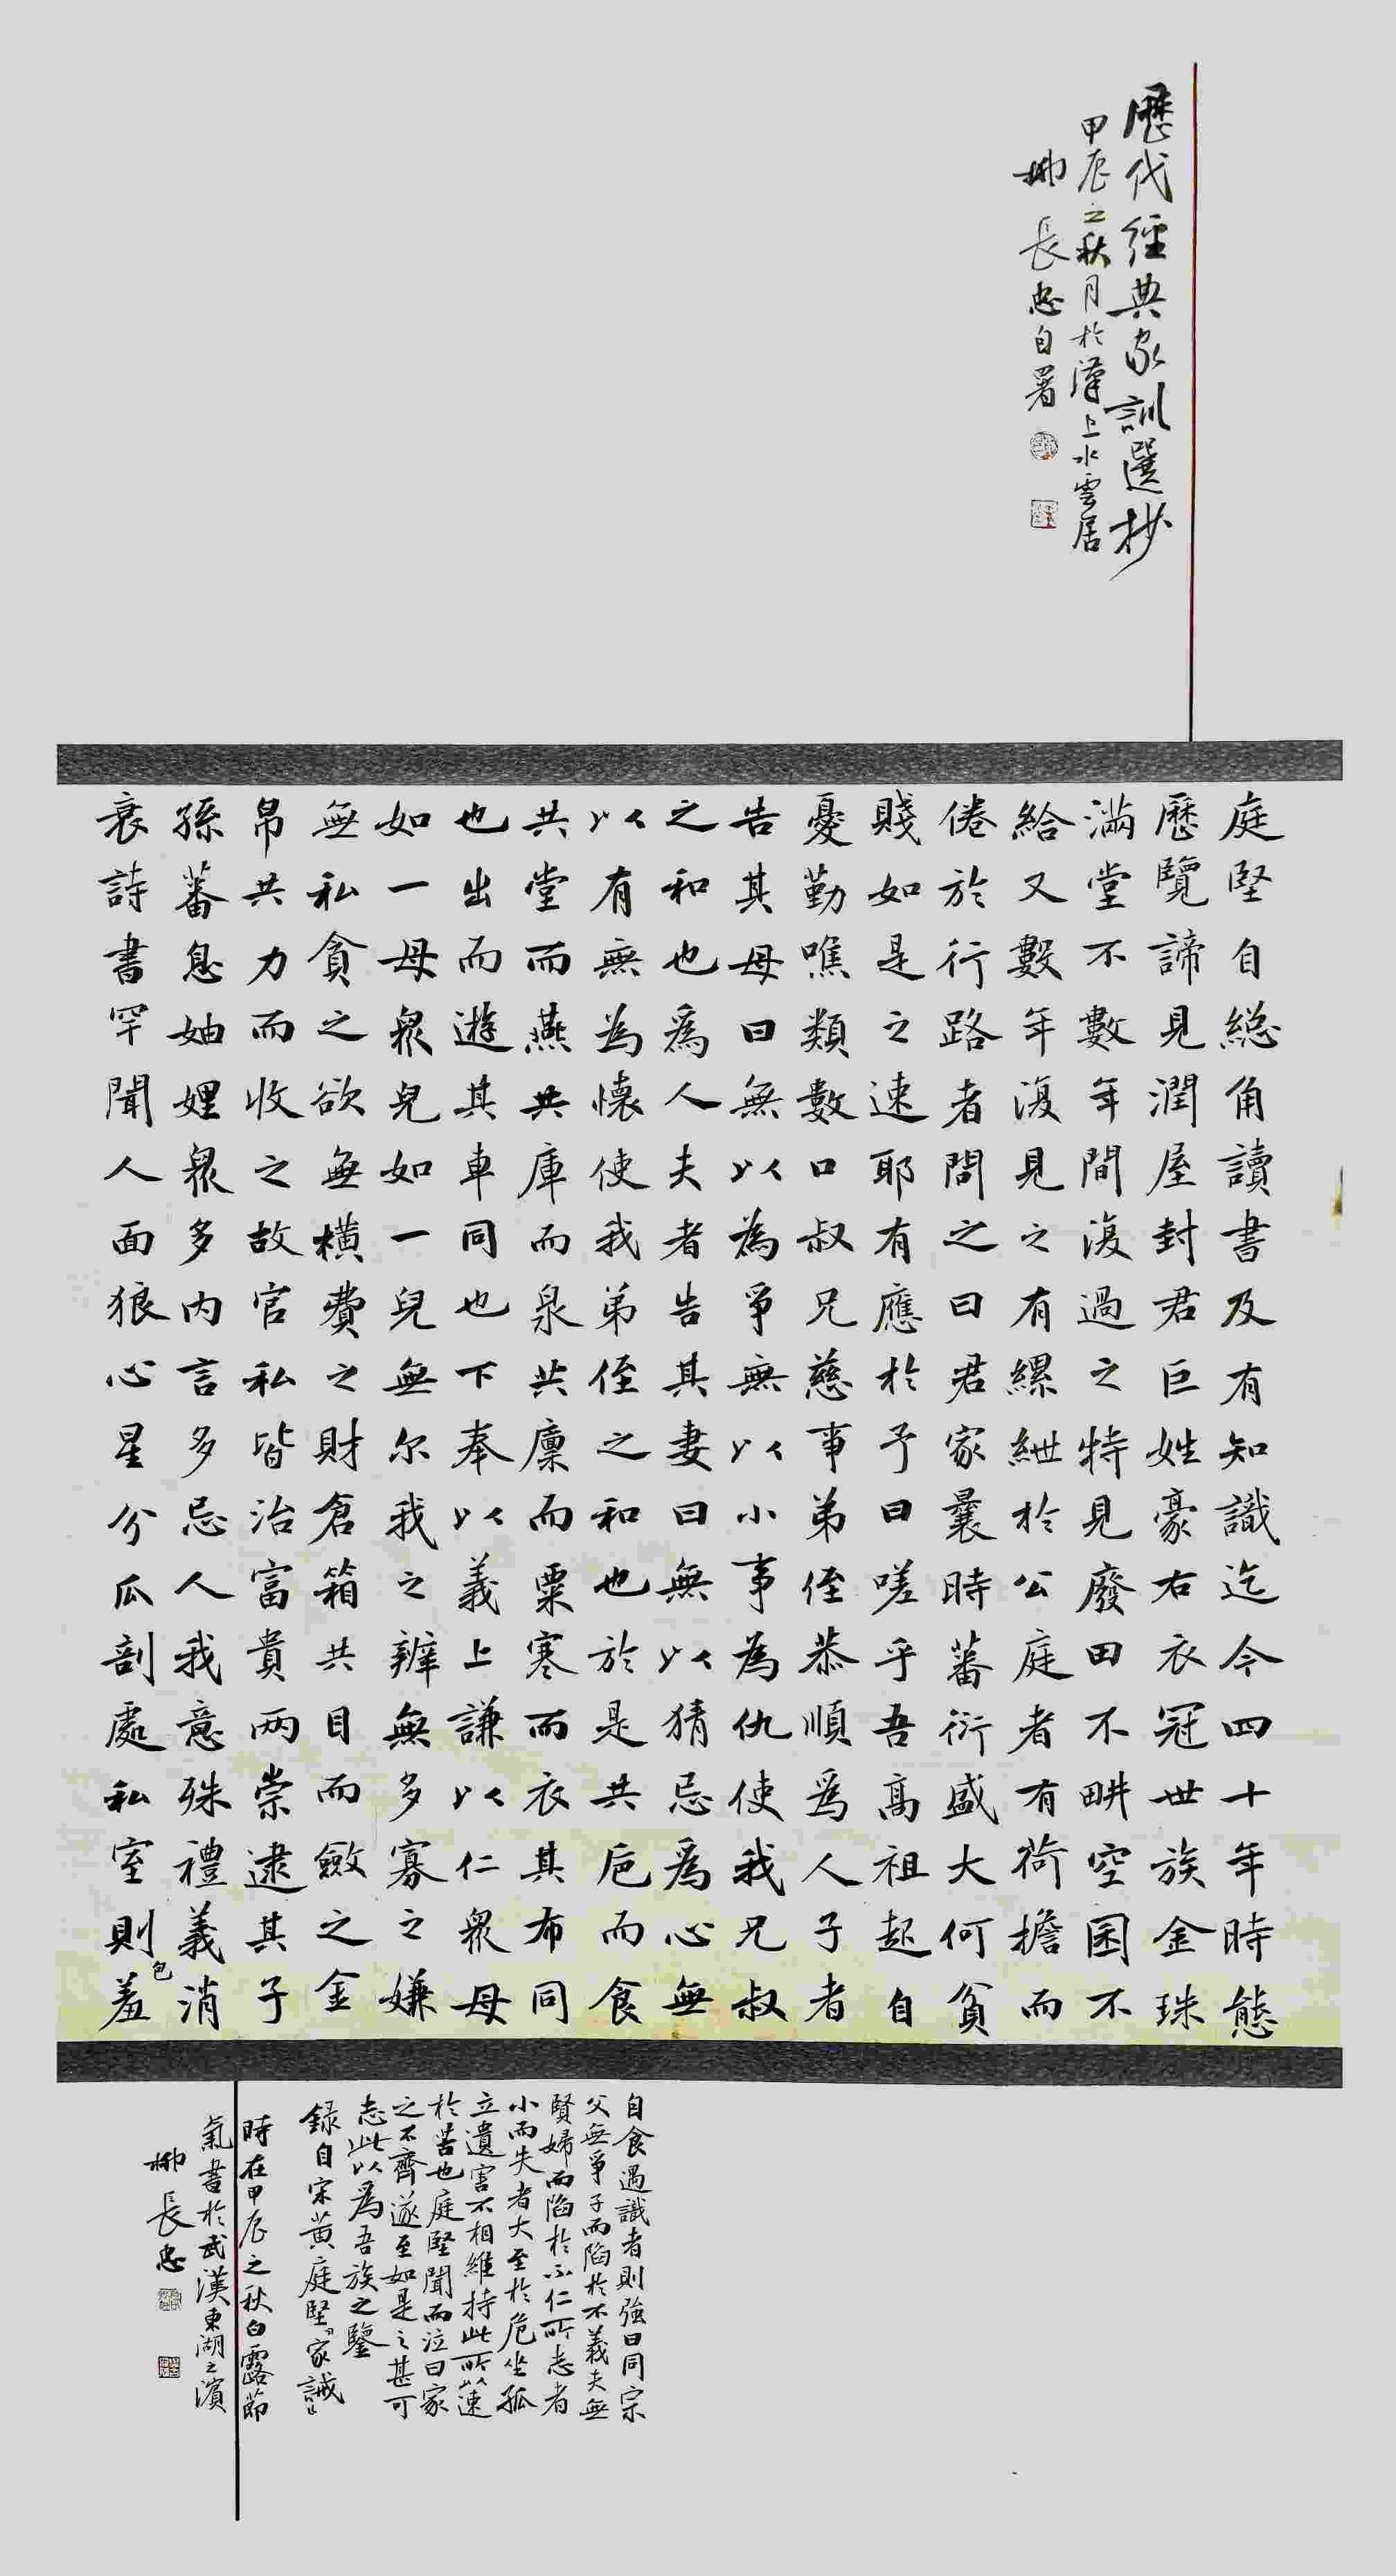 歷代經典家訓選抄
甲辰之秋月於漢上水雲居
柳長忠自署
庭堅自総角讀書及有知識迄今四十年時態
歷覽諦見潤屋封君巨姓豪右衣冠世族金珠
滿堂不數年間復過之特見廢田不畊空囷不
給又數年復見之有縲紲於公庭者有荷擔而
倦於行路者問之曰君家曩時蕃衍盛大何貧
賤如是之速耶有應於予曰嗟乎吾高祖起自
憂勤噍類數口叔兄慈事弟侄恭順為人子者
告其母曰無以為爭無以小事為仇使我兄叔
之和也為人夫者告其妻曰無以猜忌為心無
以有無為懷使我弟侄之和也於是共卮而食
共堂而燕共庫而泉共廩而粟寒而衣其布同
也出而遊其車同也下奉以義上謙以仁眾母
如一母眾兒如一兒無尔我之辨無多寡之嫌
無私貪之欲無橫費之財倉箱共目而斂之金
帛共力而收之故官私皆治富貴兩崇逮其子
孫蕃息妯娌眾多內言多忌人我意殊禮義消
衰詩書罕聞人面狼心星分瓜剖處私室則羞
包
自食遇識者則強曰同宗
父無爭子而陷於不義夫無
賢婦而陷於不仁所志者
小而失者大至於危坐孤
立遺害不相維持此所以速
於苦也庭堅聞而泣曰家
之不齊遂至如是之甚可
志此以為吾族之鑒
録自宋黃庭堅《家誡》
時在甲辰之秋白露節
氣書於武漢東湖之濱
柳長忠